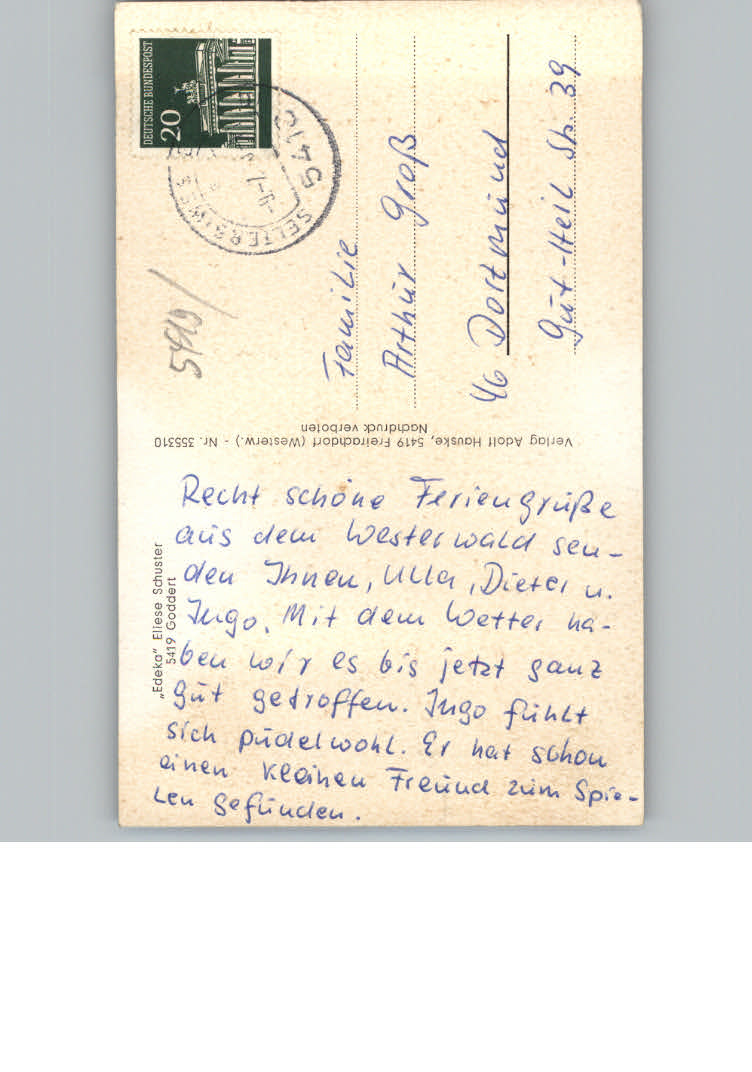 DEUTSCHE BUNDESPOST
20
541
SELTERS
5419
Familie
Arthur Groß
46 Dortmund
Gut-Heil Str. 39
Verlag Adolf Hauske, 5419 Freirachdorf (Westerw.) - Nr. 355310
Nachdruck verboten
„Edeka" Eliese Schuster
5419 Goddert
Recht schöne Feriengrüße
aus dem Westerwald sen-
den Ihnen, Ulla, Dieter u.
Ingo. Mit dem Wetter ha-
ben wir es bis jetzt ganz
gut getroffen. Ingo fühlt
sich pudelwohl. Er hat schon
einen kleinen Freund zum Spie-
len gefunden.